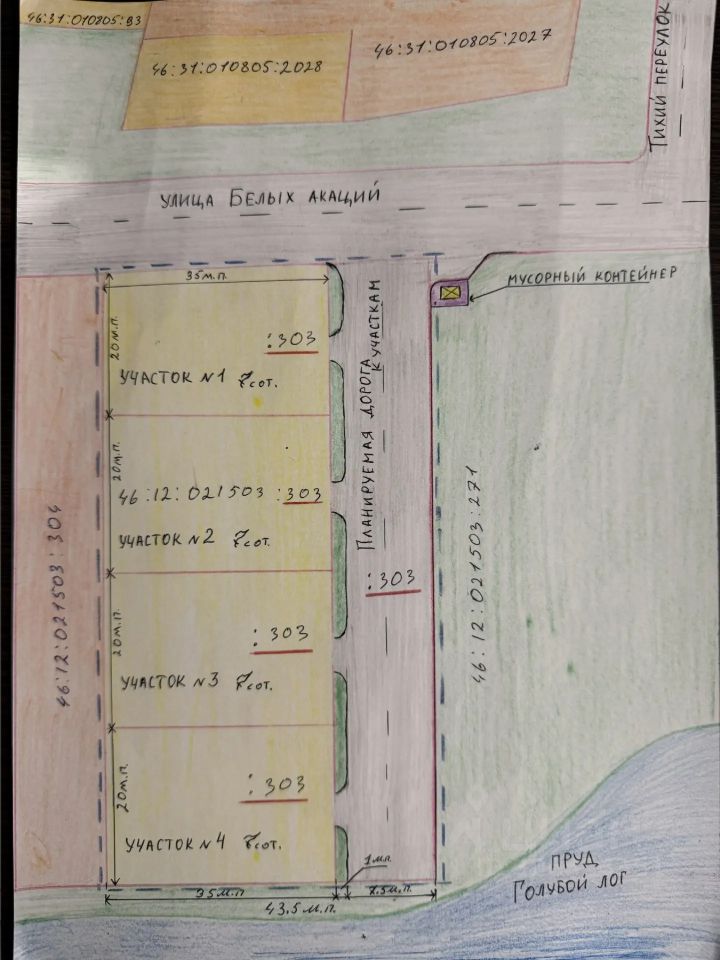 46:31:010805:93
46:31:010805:2028
46:31:010805:2027
Тихий переулок
улица Белых акаций
35м.п.
мусорный контейнер
20м.п.
:303
участок №1 7сот.
Планируемая дорога
к участкам
20м.п.
46:12:021503:303
участок №2 7сот.
46:12:021503:304
:303
46:12:021503:271
20м.п.
:303
участок №3 7сот.
20м.п.
:303
участок №4 7сот.
пруд
Голубой лог
1м.п.
35м.п
7.5м.п.
43.5м.п.